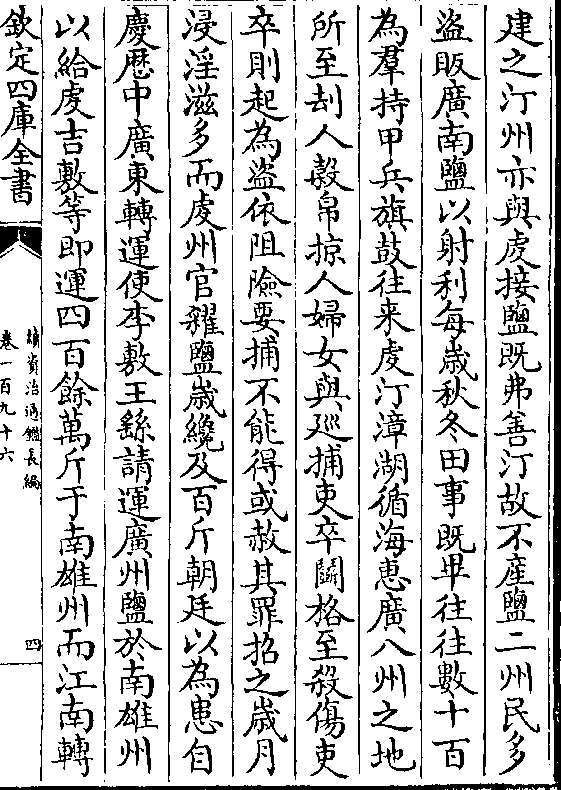 建之汀州亦與虔接鹽既弗善汀故不産鹽二州民多
盜販廣南鹽以射利每歲秋冬田事既畢往往數十百
為羣持甲兵旗鼓往来虔汀漳湖循海惠廣八州之地
所至刦人穀帛掠人婦女與廵捕吏卒鬭格至殺傷吏
卒則起為盜依阻險要捕不能得或赦其罪招之歲月
浸淫滋多而虔州官糴鹽歲纔及百斤朝廷以為患自
慶歴中廣東轉運使李敷王繇請運廣州鹽於南雄州
以給虔吉敷等即運四百餘萬斤于南雄州而江南轉
欽定四庫全書
續資治通鑑長編
卷一百九十六
四